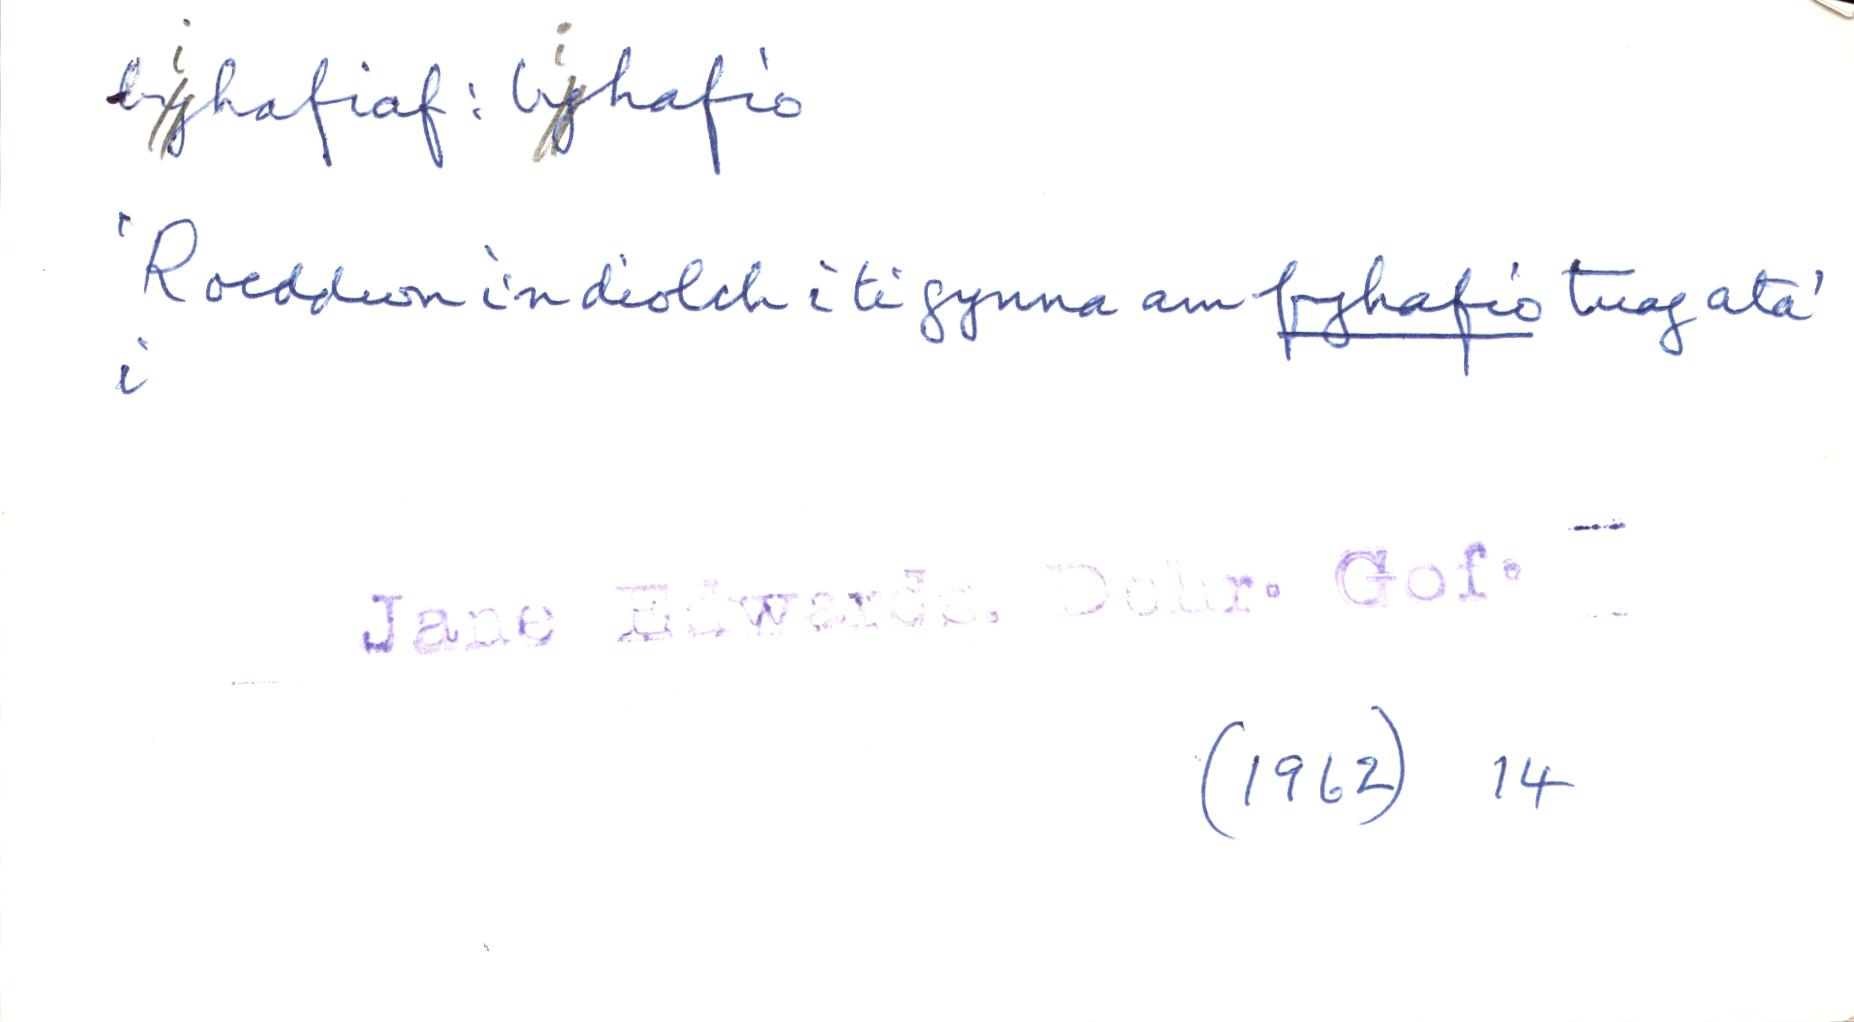 bihafiaf: bihafio
'Roeddwn i'n diolch i ti gynna am fyhafio tuag ata'
i
Jane Edwards. Dchr. Gof.
(1962) 14